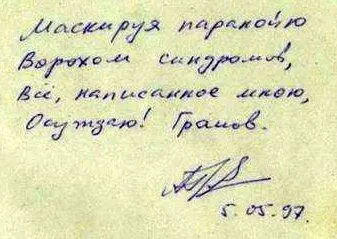 Маскируя паранойю
Ворохом синдромов,
Всё, написанное мною,
Осуждаю! Грамов.
5.05.97.